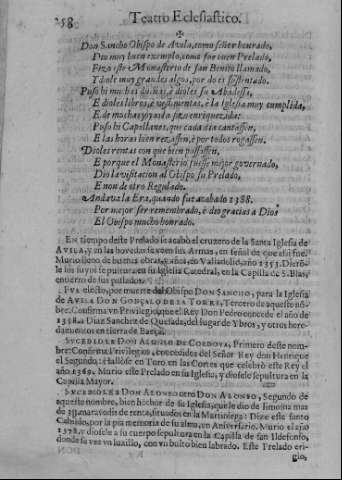 258 Teatro Eclesiastico.
✠
Don Sancho Obispo de Avila, como señor honrado,
Dio muy buen exemplo, como fue buen Prelado,
Fizo este Monasterio de san Benito llamado,
Y dole muy grandes algos, por do es sustentado.
Puso hi muchas dueñas, è dioles su Abadessa,
E dioles libros, è vestimentas, è la Iglesia muy cumplida,
E de muchas joyas do
Puso hi Capellanes, que cada dia cantassen,
E las horas bien rezassen, è por todos rogassen.
Dioles rentas con que bien passassen,
E porque el Monasterio fuesse mejor governado,
Dio la visitacion al Obispo su Prelado,
E non de otro Regulado.
Andava la Era, quando fue acabado 1388.
Por mejor ser remembrado, è deo gracias à Dios
El Obispo mucho honrado.
En tiempo deste Prelado se acabò el cruzero de la Santa Iglesia de
Avila, y en las bovedas se ven sus Armas, en señal de que assi fue.
Murio lleno de buenas obras, y años, en Valladolid, año 1355. Dierõ-
le los suyos sepultura en su Iglesia Catedral, en la Capilla de S. Blas,
entierro de sus passados.
Fue electo, por muerte del Obispo Don Sancho, para la Iglesia
de Avila Don Gonçalo de la Torre, Tercero de aqueste nõ-
bre. Confirma vn Privilegio, que el Rey Don Pedro concede el año de
1358. a Diaz Sanchez de Quesada, del lugar de Ybros, y otros here-
damientos en tierra de Baeza.
Sucediole Don Alonso de Cordova, Primero deste nom-
bre: Confirma Privilegios, concedidos del Señor Rey don Henrique
el Segundo: Hallòse en Toro en las Cortes que celebrò este Rey el
año 1369. Murio este Prelado en su Iglesia, y dosele sepultura en la
Capilla Mayor.
Sucediole Don Alonso otro Don Alonso, Segundo de
aqueste nombre, bien hechor de su Iglesia, que le dio de limosna mas
de maravedis de renta, situados en la Martiniega: Dize este santo
Cabildo, por la pia memoria de su alma, vn Aniversario. Murio el año
1378. y diosele a su cuerpo sepultura en la Capilla de san Ildefonso,
donde se vee vn luzillo, con vn bulto bien labrado. Este Prelado eri-
gio,